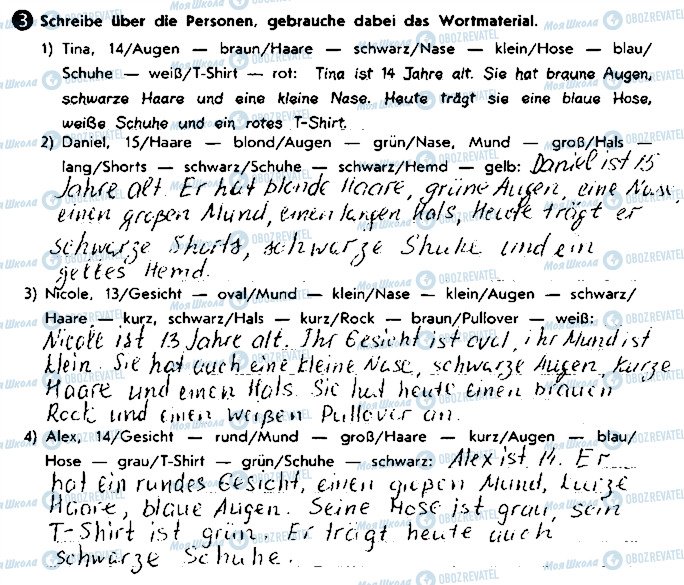 3 Schreibe über die Personen, gebrauche dabei das Wortmaterial.
1) Tina, 14/Augen — braun/Haare — schwarz/Nase — klein/Hose — blau/
Schuhe — weiß/T-Shirt — rot: Tina ist 14 Jahre alt. Sie hat braune Augen,
schwarze Haare und eine kleine Nase. Heute trägt sie eine blaue Hose,
weiße Schuhe und ein rotes T-Shirt.
2) Daniel, 15/Haare — blond/Augen — grün/Nase, Mund — groß/Hals —
lang/Shorts — schwarz/Schuhe — schwarz/Hemd — gelb: Daniel ist 15
Jahre alt. Er hat blonde Haare, grüne Augen, eine Nase
einen großen Mund, einen langen Hals, Heute trägt er
schwarze Shorts, schwarze Shuhe und ein
geltes Hemd.
3) Nicole, 13/Gesicht — oval/Mund — klein/Nase — klein/Augen — schwarz/
Haare — kurz, schwarz/Hals — kurz/Rock — braun/Pullover — weiß:
Nicole ist 13 Jahre alt. Ihr Gesicht ist oval, ihr Mund ist
klein. Sie hat auch eine kleine Nase, schwarze Augen, kurze
Haare und einen Hals. Sie hat heute einen brauen
Rock und einen weißen Pullover an.
4) Alex, 14/Gesicht — rund/Mund — groß/Haare — kurz/Augen — blau/
Hose — grau/T-Shirt — grün/Schuhe — schwarz: Alex ist 14. Er
hat ein rundes Gesicht, einen großen Mund, kurze
Haare, blaue Augen. Seine Hose ist grau, sein
T-Shirt ist grün. Er trägt heute auch
schwarze Schuhe.
Моя Школа OBOZREVATEL